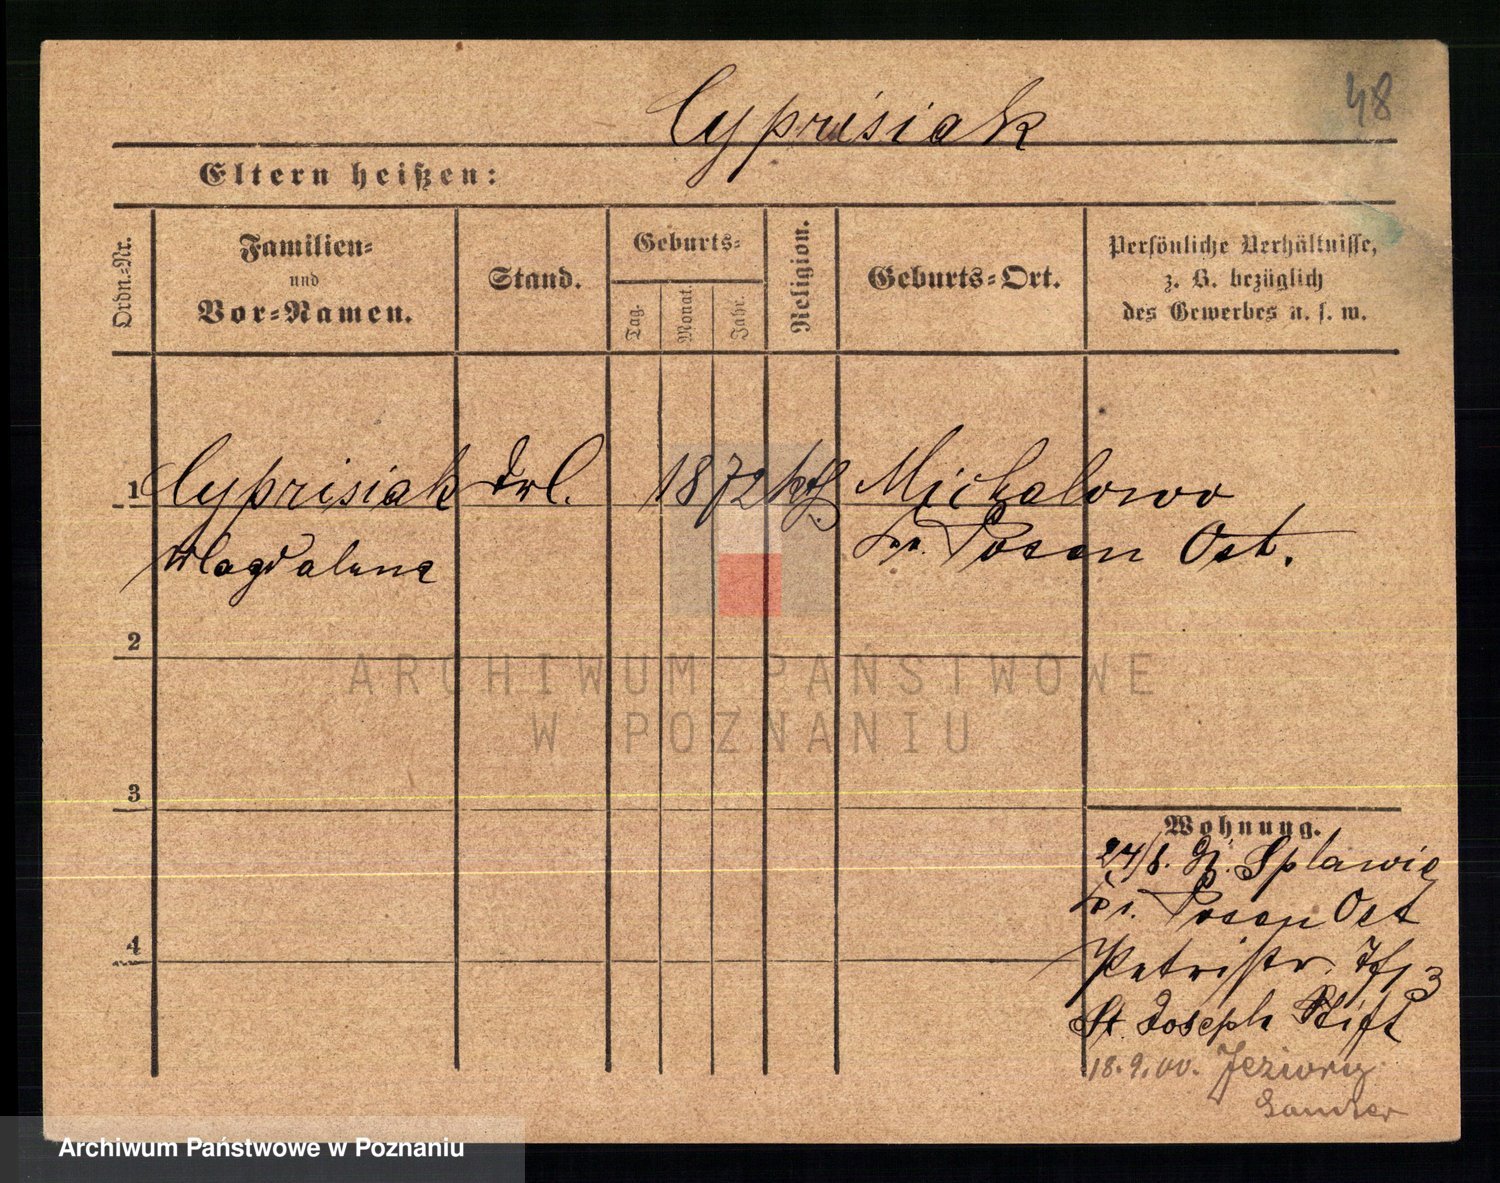 48
Cyprisiak
Eltern heißen:
Ordn.-Nr.
Familien-
und
Vor-Namen.
Stand.
Geburts-
Tag.
Monat.
Jahr.
Religion.
Geburts-Ort.
Persönliche Verhältnisse,
z. B. bezüglich
des Gewerbes u. s. w.
1 Cyprisiak Frl. 1872 kth Michalowo
Magdalena Kr. Posen Ost.
2
3
4
Wohnung.
24/8. Splawie
Kr. Posen Ost
Petristr.
St. Joseph Stift
18.9.00. Jeziory
ARCHIWUM PAŃSTWOWE
W POZNANIU
Archiwum Państwowe w Poznaniu